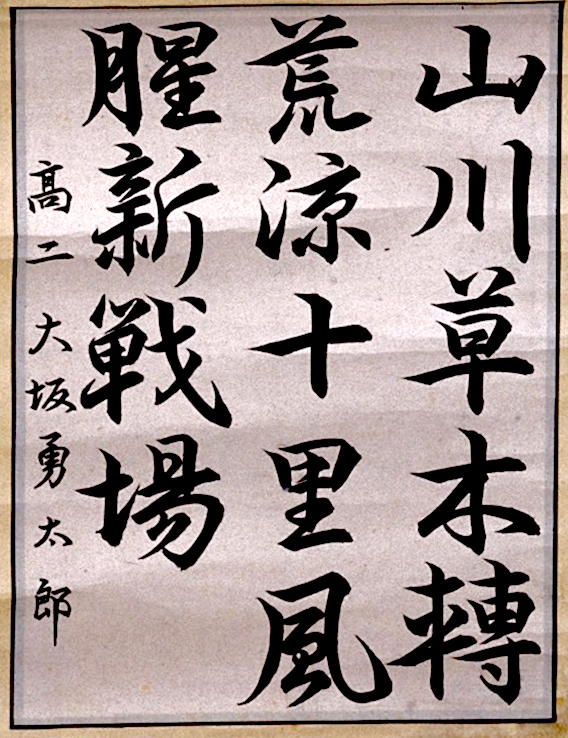 山川草木轉
荒涼十里風
腥新戦場
高二 大坂勇太郎